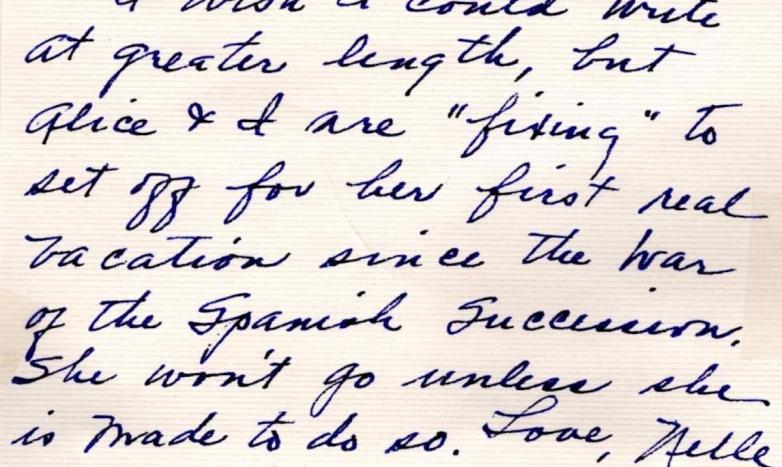 I wish I could write
at greater length, but
Alice & I are "fixing" to
set off for her first real
vacation since the War
of the Spanish Succession.
She won't go unless she
is made to do so. Love, Nelle